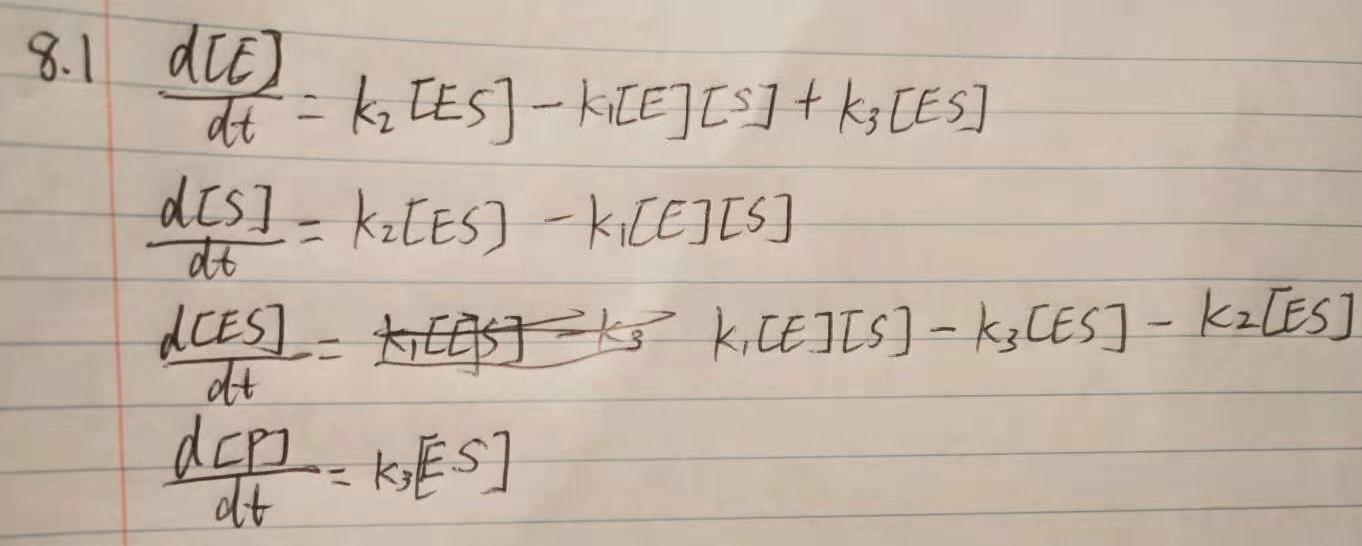 8.1 d[E]/dt = k₂[ES] - k₁[E][S] + k₃[ES]
d[S]/dt = k₂[ES] - k₁[E][S]
d[ES]/dt = k₁[E][S] - k₃[ES] - k₂[ES]
d[P]/dt = k₃[ES]